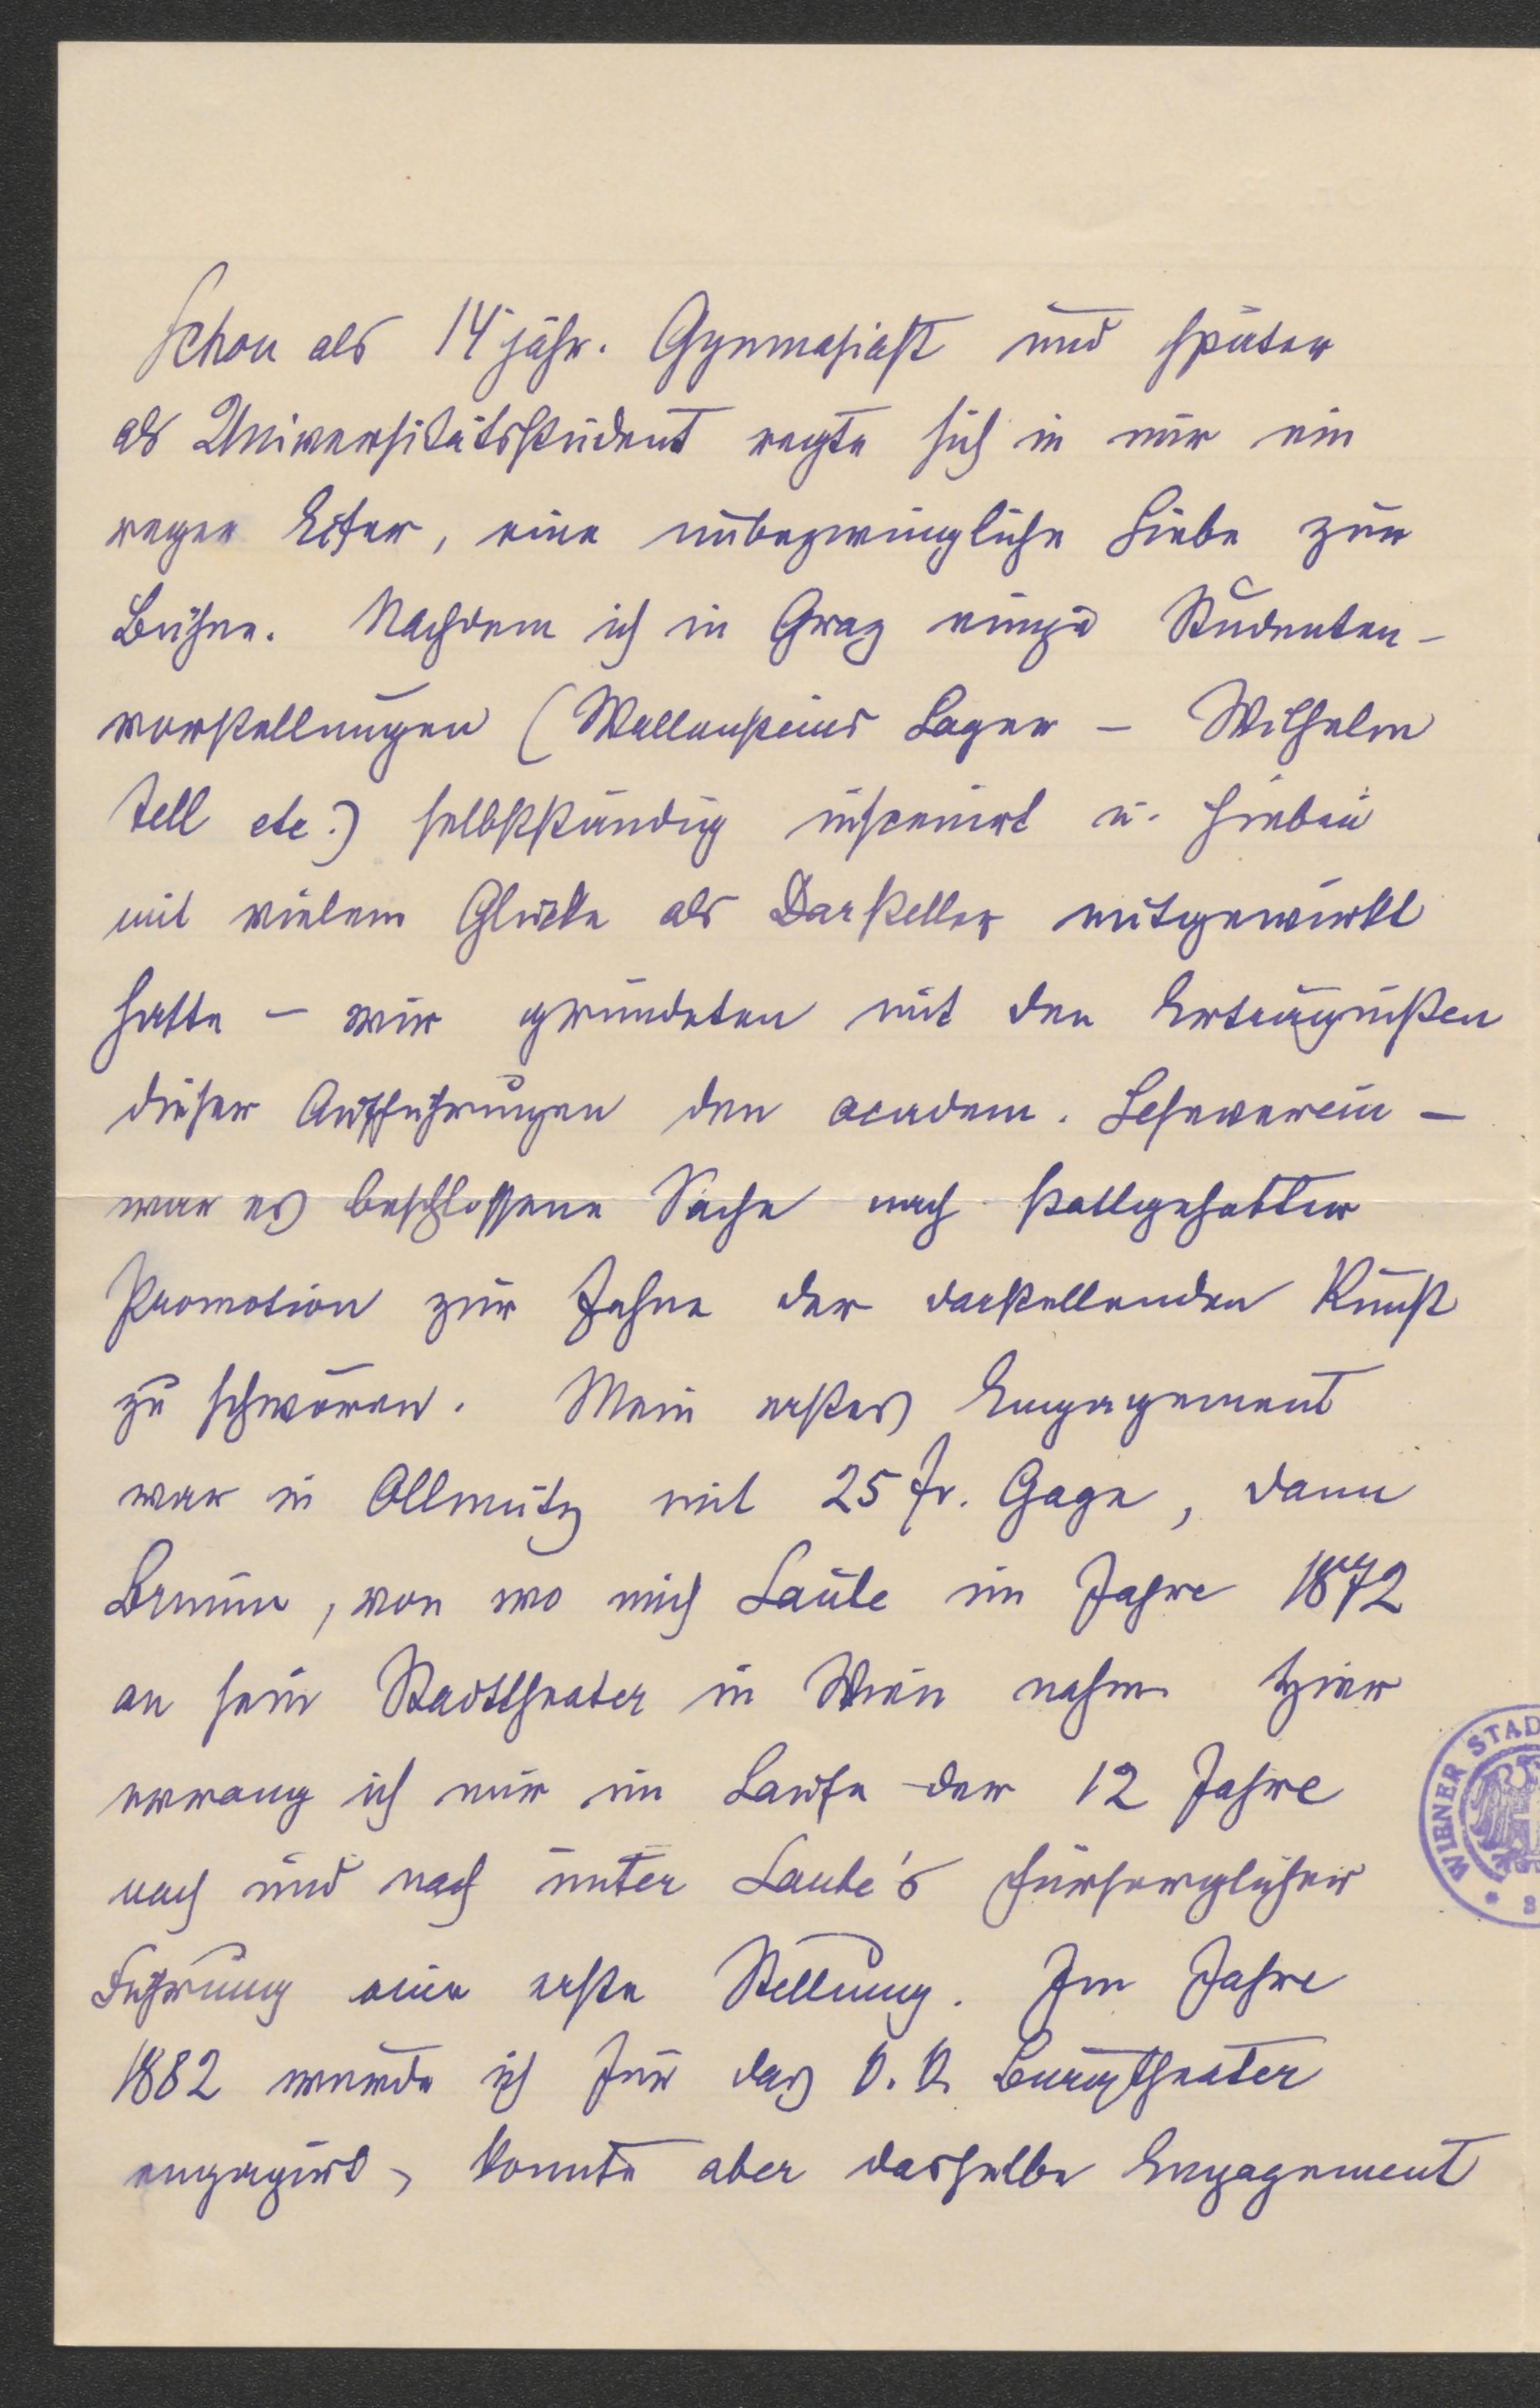 Schon als 14 jähr. Gymnasiast und später
als Universitätsstudent regte sich in mir ein
reger Eifer, eine unbezwingliche Liebe zur
Bühne. Nachdem ich in Graz einige Studenten-
vorstellungen (Wallensteins Lager – Wilhelm
Tell etc.) selbstständig inscenirt u. hiebei
mit vielem Glücke als Darsteller mitgewirkt
hatte – wir gründeten mit den Erträgnißen
dieser Aufführungen den academ. Leseverein –
war es beschlossene Sache nach stattgehabter
Promotion zur Fahne der darstellenden Kunst
zu schwören. Mein erstes Engagement
war in Ollmütz mit 25 fr. Gage, dann
Brünn, von wo mich Laube im Jahre 1872
an sein Stadttheater in Wien nahm. Hier
errang ich mir im Laufe der 12 Jahre
nach und nach unter Laube's fürsorglicher
Führung eine erste Stellung. Im Jahre
1882 wurde ich für das k. k. Burgtheater
engagirt, konnte aber dasselbe Engagement
WIENER STAD